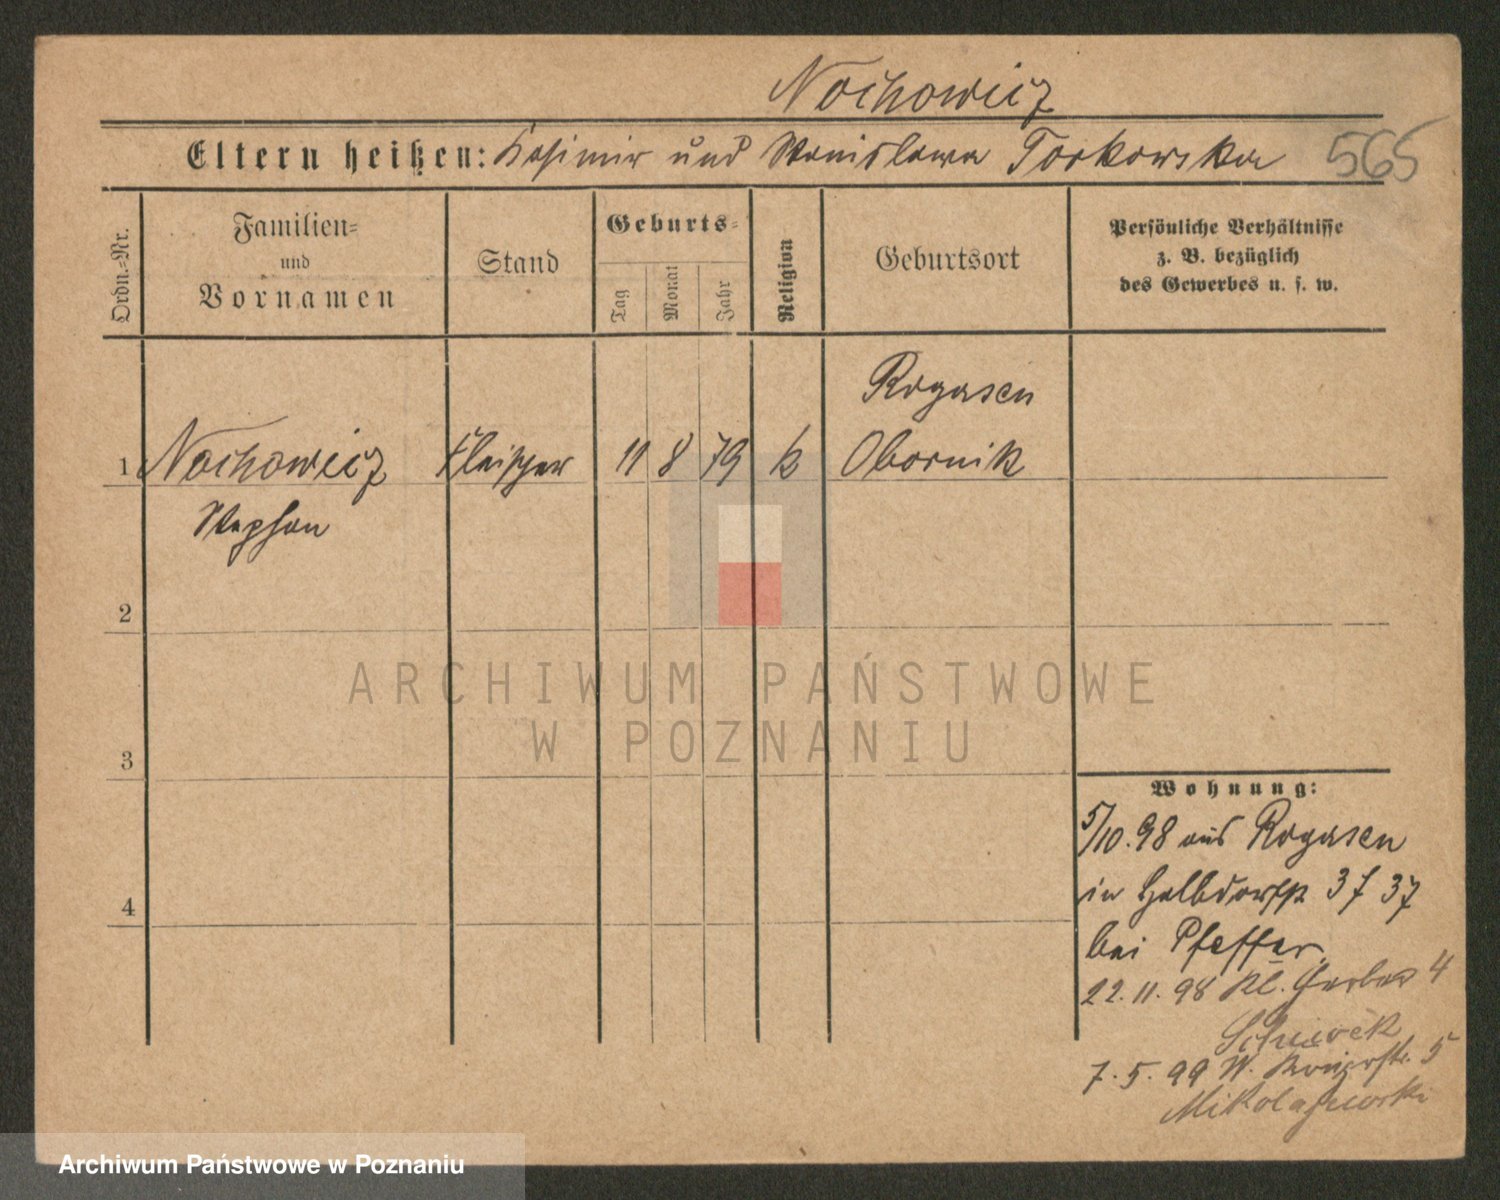 Nochowicz
Eltern heißen: Kasimir und Stanislawa Torkowska 565
Ordn.-Nr.
Familien-
und
Vornamen
Stand
Geburts-
Tag
Monat
Jahr
Religion
Geburtsort
Persönliche Verhältnisse
z. B. bezüglich
des Gewerbes u. s. w.
Rogasen
1 Nochowicz Fleischer 11 8 79 k Obornik
Stephan
2
3
4
ARCHIWUM PAŃSTWOWE
W POZNANIU
Wohnung:
5/10.98 aus Rogasen
in Halbdorfstr 37
bei Pfeffer.
22.11.98 Kl. Gerber 4
7.5.99 W.
Mikolajewski
Archiwum Państwowe w Poznaniu